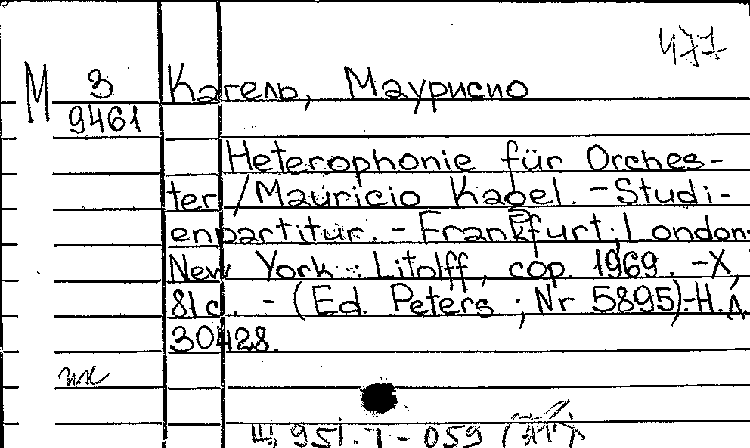 471
М 3 Кагель, Маурисио
9461
Heterophonie für Orches-
ter / Mauricio Kagel. - Studi-
enpartitur. - Frankfurt; London;
New York : Litolff, cop. 1969. - X,
81 c. - (Ed. Peters ; Nr 5895).-Н.Д.
30428.
Щ 951.1-059